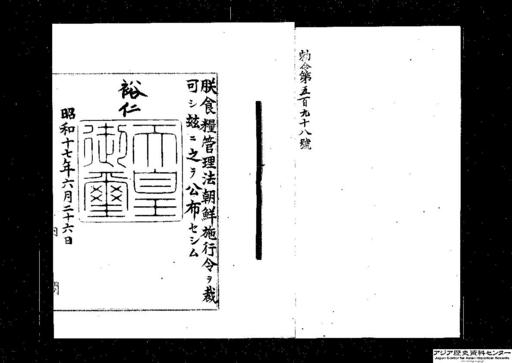 勅令第五百九十八號
朕食糧管理法朝鮮施行令ヲ裁
可シ玆ニ之ヲ公布セシム
裕仁
天皇
御璽
昭和十七年六月二十六日
内
閣
アジア歴史資料センター
Japan Center for Asian Historical Records